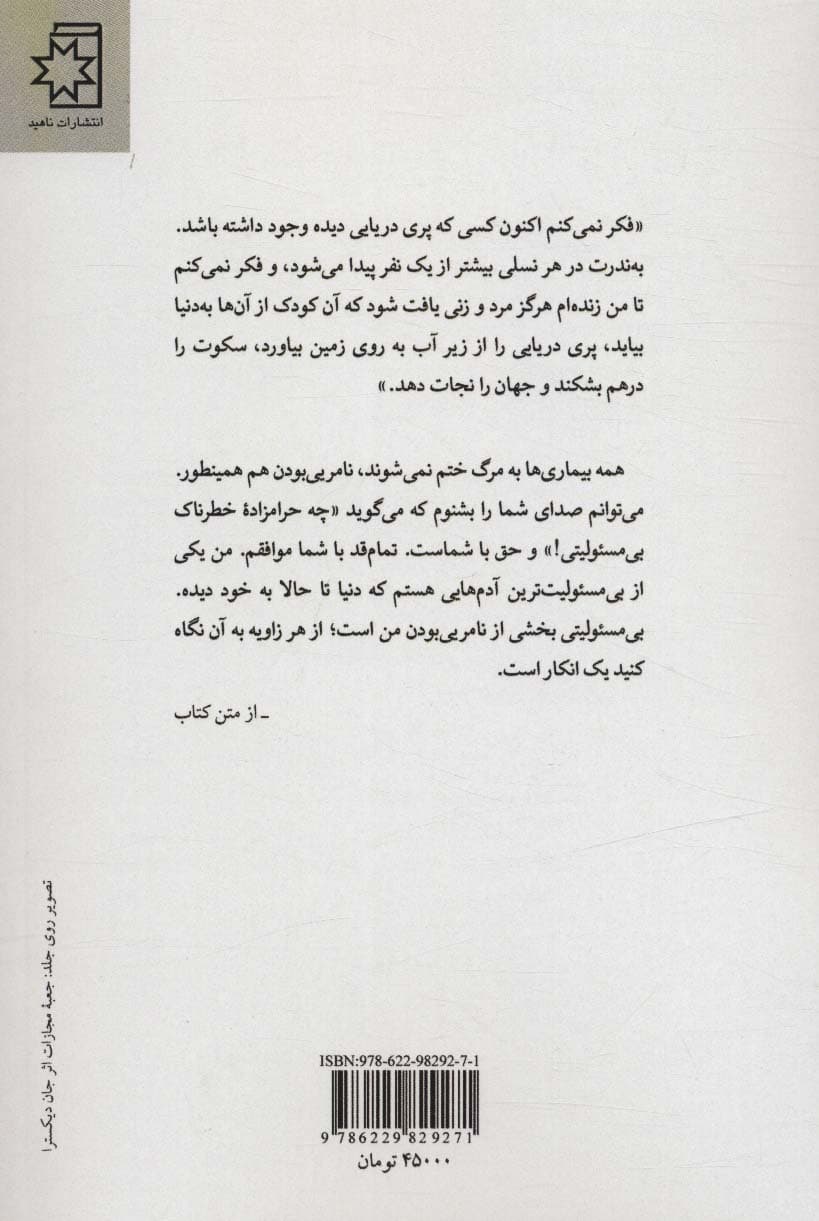 انتشارات ناهید
«فکر نمی‌کنم اکنون کسی که پری دریایی دیده وجود داشته باشد.
به‌ندرت در هر نسلی بیشتر از یک نفر پیدا می‌شود، و فکر نمی‌کنم
تا من زنده‌ام هرگز مرد و زنی یافت شود که آن کودک از آن‌ها به‌دنیا
بیاید، پری دریایی را از زیر آب به روی زمین بیاورد، سکوت را
درهم بشکند و جهان را نجات دهد.»
همه بیماری‌ها به مرگ ختم نمی‌شوند، نامریی‌بودن هم همینطور.
می‌توانم صدای شما را بشنوم که می‌گوید «چه حرامزادۀ خطرناک
بی‌مسئولیتی!» و حق با شماست. تمام‌قد با شما موافقم. من یکی
از بی‌مسئولیت‌ترین آدم‌هایی هستم که دنیا تا حالا به خود دیده.
بی‌مسئولیتی بخشی از نامریی‌بودن من است؛ از هر زاویه به آن نگاه
کنید یک انکار است.
ـ از متن کتاب
تصویر روی جلد: جعبۀ مجازات اثر جان دیکسترا
ISBN:978-622-98292-7-1
9 786229 829271
۴۵۰۰۰ تومان